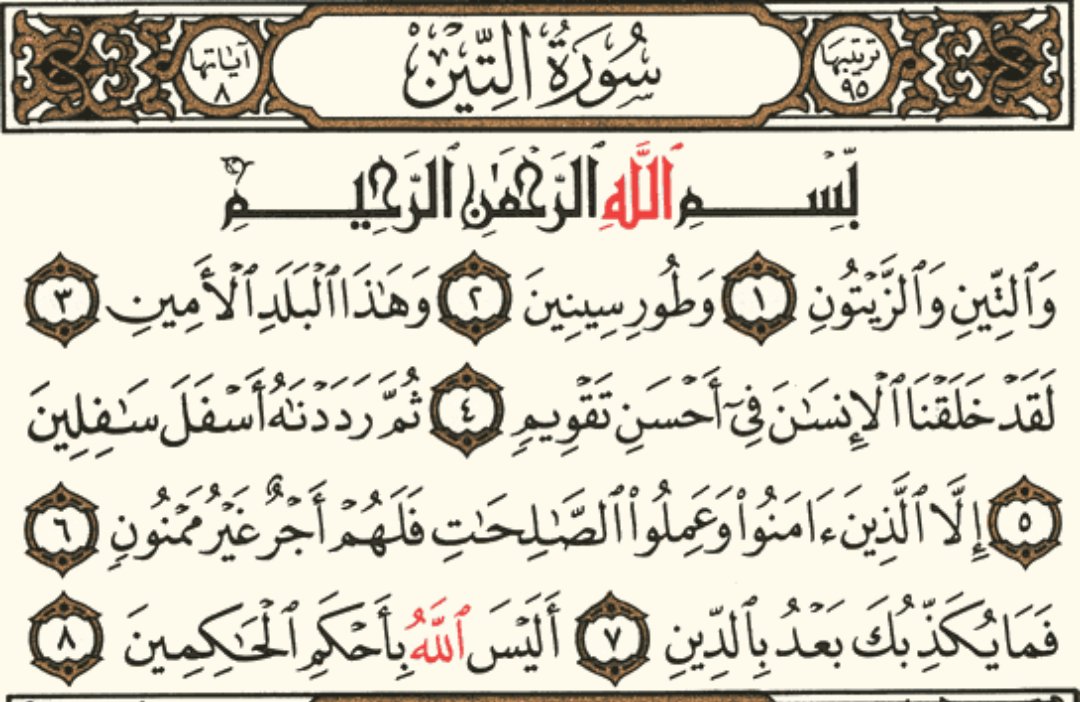 ترتيبها ٩٥ سُورَةُ التِّيْنِ آيَاتُهَا ٨
بِّسۡمِ ٱللَّهِ ٱلرَّحۡمَٰنِ ٱلرَّحِيمِ
وَٱلتِّينِ وَٱلزَّيۡتُونِ ١ وَطُورِ سِينِينَ ٢ وَهَٰذَا ٱلۡبَلَدِ ٱلۡأَمِينِ ٣
لَقَدۡ خَلَقۡنَا ٱلۡإِنسَٰنَ فِيٓ أَحۡسَنِ تَقۡوِيمٖ ٤ ثُمَّ رَدَدۡنَٰهُ أَسۡفَلَ سَٰفِلِينَ
٥ إِلَّا ٱلَّذِينَ ءَامَنُواْ وَعَمِلُواْ ٱلصَّٰلِحَٰتِ فَلَهُمۡ أَجۡرٌ غَيۡرُ مَمۡنُونٖ ٦
فَمَا يُكَذِّبُكَ بَعۡدُ بِٱلدِّينِ ٧ أَلَيۡسَ ٱللَّهُ بِأَحۡكَمِ ٱلۡحَٰكِمِينَ ٨